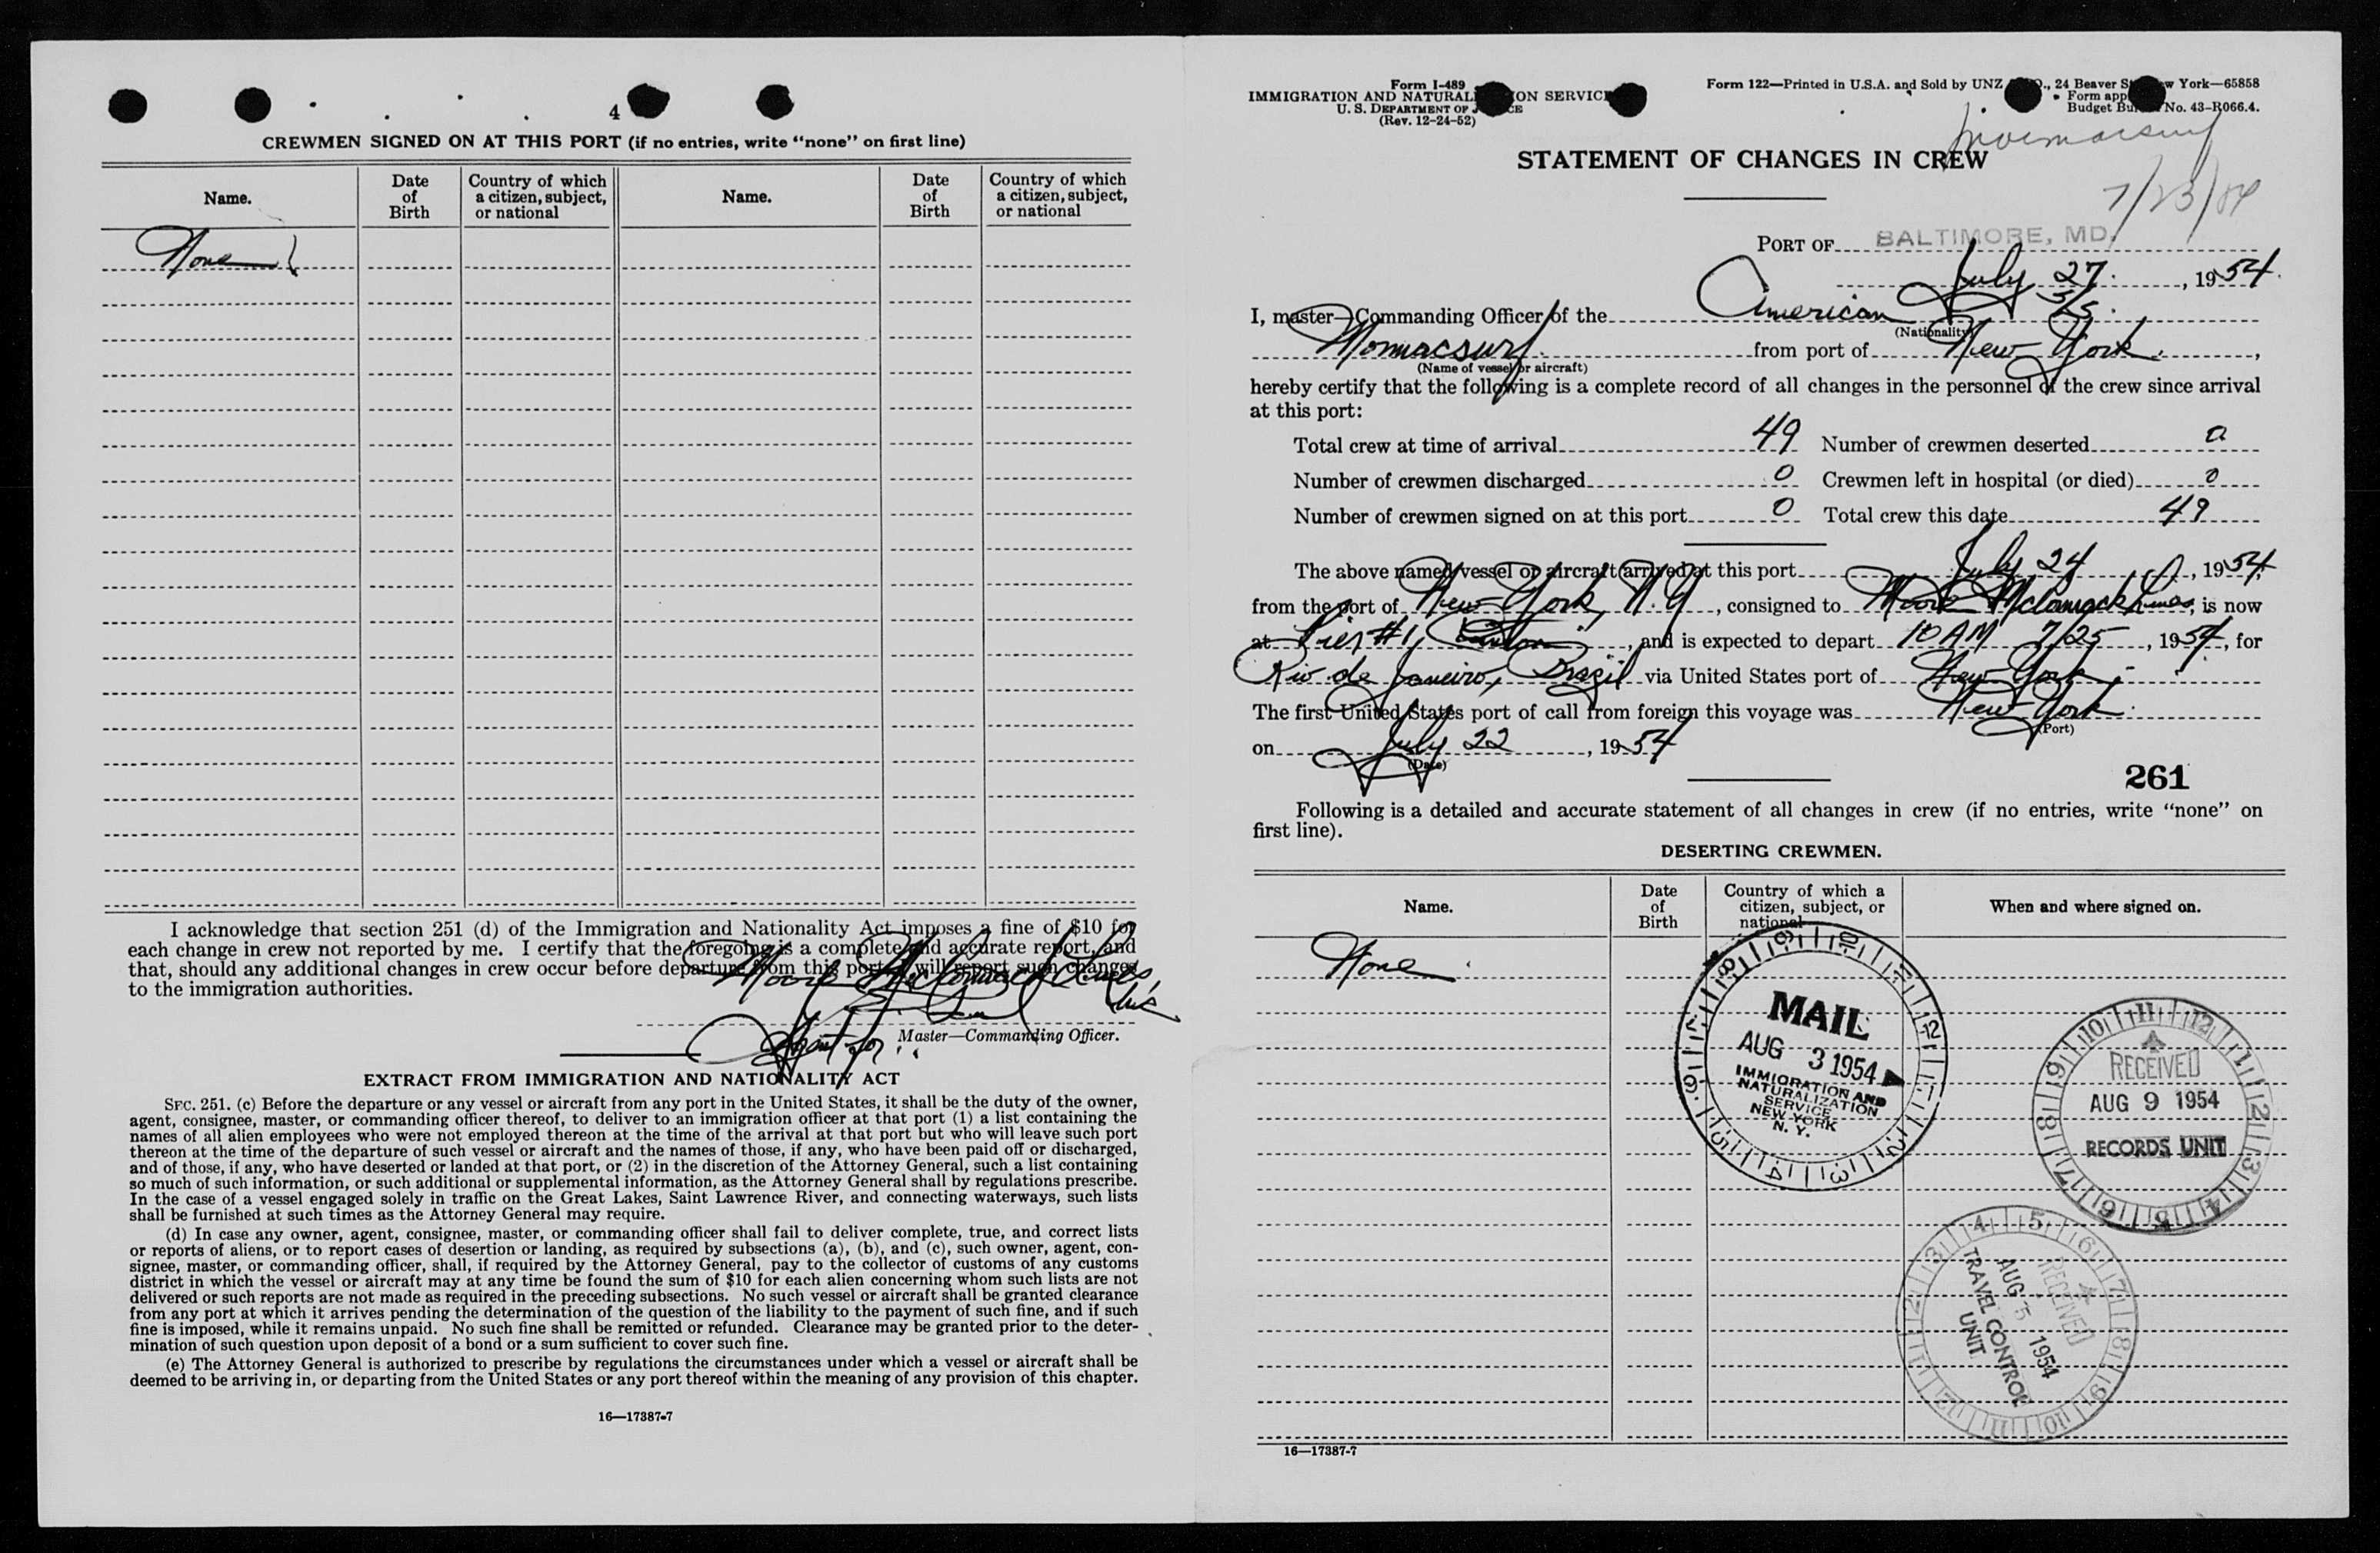 4
CREWMEN SIGNED ON AT THIS PORT (if no entries, write “none” on first line)
Name. Date of Birth Country of which a citizen, subject, or national Name. Date of Birth Country of which a citizen, subject, or national
None
I acknowledge that section 251 (d) of the Immigration and Nationality Act imposes a fine of $10 for
each change in crew not reported by me. I certify that the foregoing is a complete and accurate report, and
that, should any additional changes in crew occur before departure from this port I will report such changes
to the immigration authorities.
Moore McCormack Lines
Agent for
Master—Commanding Officer.
EXTRACT FROM IMMIGRATION AND NATIONALITY ACT
SEC. 251. (c) Before the departure or any vessel or aircraft from any port in the United States, it shall be the duty of the owner,
agent, consignee, master, or commanding officer thereof, to deliver to an immigration officer at that port (1) a list containing the
names of all alien employees who were not employed thereon at the time of the arrival at that port but who will leave such port
thereon at the time of the departure of such vessel or aircraft and the names of those, if any, who have been paid off or discharged,
and of those, if any, who have deserted or landed at that port, or (2) in the discretion of the Attorney General, such a list containing
so much of such information, or such additional or supplemental information, as the Attorney General shall by regulations prescribe.
In the case of a vessel engaged solely in traffic on the Great Lakes, Saint Lawrence River, and connecting waterways, such lists
shall be furnished at such times as the Attorney General may require.
(d) In case any owner, agent, consignee, master, or commanding officer shall fail to deliver complete, true, and correct lists
or reports of aliens, or to report cases of desertion or landing, as required by subsections (a), (b), and (c), such owner, agent, con-
signee, master, or commanding officer, shall, if required by the Attorney General, pay to the collector of customs of any customs
district in which the vessel or aircraft may at any time be found the sum of $10 for each alien concerning whom such lists are not
delivered or such reports are not made as required in the preceding subsections. No such vessel or aircraft shall be granted clearance
from any port at which it arrives pending the determination of the question of the liability to the payment of such fine, and if such
fine is imposed, while it remains unpaid. No such fine shall be remitted or refunded. Clearance may be granted prior to the deter-
mination of such question upon deposit of a bond or a sum sufficient to cover such fine.
(e) The Attorney General is authorized to prescribe by regulations the circumstances under which a vessel or aircraft shall be
deemed to be arriving in, or departing from the United States or any port thereof within the meaning of any provision of this chapter.
16—17387-7
Form I-489
IMMIGRATION AND NATURALIZATION SERVICE
U. S. DEPARTMENT OF JUSTICE
(Rev. 12-24-52)
Form 122—Printed in U.S.A. and Sold by UNZ 24 Beaver York—65858
Form app
Budget No. 43-R066.4.
Mormacsurf
STATEMENT OF CHANGES IN CREW
7/23/54
PORT OF BALTIMORE, MD.
July 27, 1954.
I, master—Commanding Officer of the American S/S.
(Nationality)
Mormacsurf. from port of New York.,
(Name of vessel or aircraft)
hereby certify that the following is a complete record of all changes in the personnel of the crew since arrival
at this port:
Total crew at time of arrival 49 Number of crewmen deserted 0
Number of crewmen discharged 0 Crewmen left in hospital (or died) 0
Number of crewmen signed on at this port 0 Total crew this date 49
The above named vessel or aircraft arrived at this port July 24, 1954
from the port of New York, N.Y, consigned to Moore McCormack Lines, is now
at Pier #1, Canton, and is expected to depart 10 AM 7/25, 1954, for
Rio de Janeiro, Brazil via United States port of New York
The first United States port of call from foreign this voyage was New York.
(Port)
on July 22, 1954
(Date)
261
Following is a detailed and accurate statement of all changes in crew (if no entries, write “none” on
first line).
DESERTING CREWMEN.
Name. Date of Birth Country of which a citizen, subject, or national When and where signed on.
None
MAIL
AUG 3 1954
IMMIGRATION AND
NATURALIZATION
SERVICE
NEW YORK
N. Y.
RECEIVED
AUG 9 1954
RECORDS UNIT
RECEIVED
AUG 5 1954
TRAVEL CONTROL
UNIT
16—17387-7